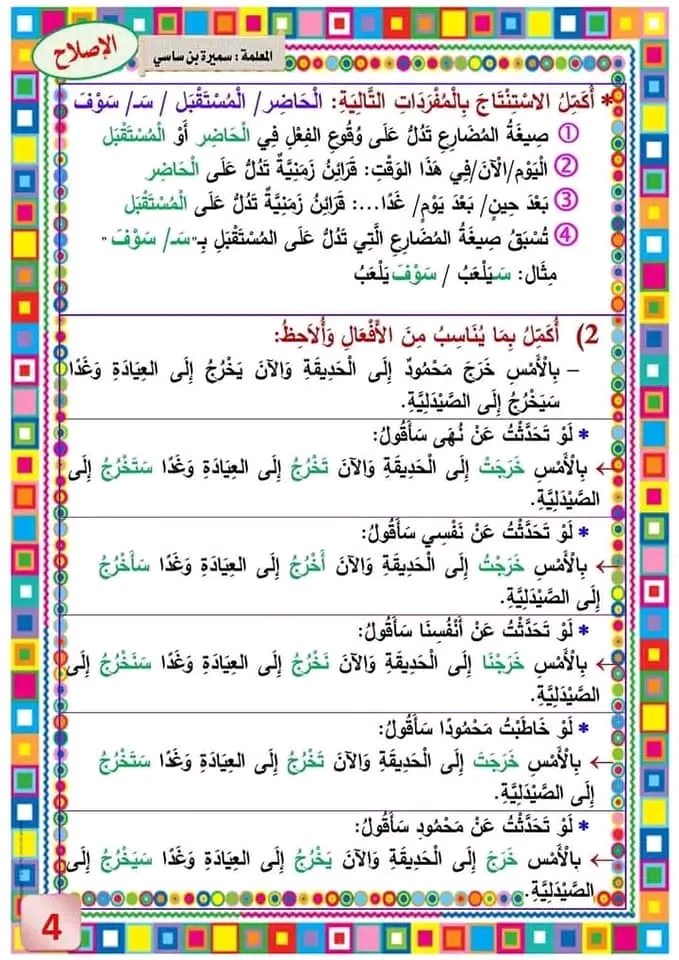 الإصلاح
المعلمة : سميرة بن ساسي
* أُكَمِّلُ الاسْتِنْتَاجَ بِالْمُفْرَدَاتِ التَّالِيَةِ: الْحَاضِر/ الْمُسْتَقْبَل / سَـ/ سَوْفَ
① صِيغَةُ المُضَارِعِ تَدُلُّ عَلَى وُقُوعِ الفِعْلِ فِي الْحَاضِر أَوْ الْمُسْتَقْبَل
② الْيَوْم/الْآنَ/فِي هَذَا الوَقْتِ: قَرَائِنُ زَمَنِيَّةٌ تَدُلُّ عَلَى الْحَاضِر
③ بَعْدَ حِينٍ/ بَعْدَ يَوْمٍ/ غَدًا...: قَرَائِنُ زَمَنِيَّةٌ تَدُلُّ عَلَى الْمُسْتَقْبَل
④ تُسْبَقُ صِيغَةُ المُضَارِعِ الَّتِي تَدُلُّ عَلَى المُسْتَقْبَلِ بِـ"سَـ/ سَوْفَ "
مِثَال: سَيَلْعَبُ / سَوْفَ يَلْعَبُ
2) أُكَمِّلُ بِمَا يُنَاسِبُ مِنَ الأَفْعَالِ وَأُلاَحِظُ:
– بِالْأَمْسِ خَرَجَ مَحْمُودٌ إِلَى الْحَدِيقَةِ وَالآنَ يَخْرُجُ إِلَى العِيَادَةِ وَغَدًا
سَيَخْرُجُ إِلَى الصَّيْدَلِيَّةِ.
* لَوْ تَحَدَّثْتُ عَنْ نُهَى سَأَقُولُ:
← بِالْأَمْسِ خَرَجَتْ إِلَى الْحَدِيقَةِ وَالآنَ تَخْرُجُ إِلَى العِيَادَةِ وَغَدًا سَتَخْرُجُ إِلَى
الصَّيْدَلِيَّةِ.
* لَوْ تَحَدَّثْتُ عَنْ نَفْسِي سَأَقُولُ:
← بِالْأَمْسِ خَرَجْتُ إِلَى الْحَدِيقَةِ وَالآنَ أَخْرُجُ إِلَى العِيَادَةِ وَغَدًا سَأَخْرُجُ
إِلَى الصَّيْدَلِيَّةِ.
* لَوْ تَحَدَّثْتُ عَنْ أَنْفُسِنَا سَأَقُولُ:
← بِالْأَمْسِ خَرَجْنَا إِلَى الْحَدِيقَةِ وَالآنَ نَخْرُجُ إِلَى العِيَادَةِ وَغَدًا سَنَخْرُجُ إِلَى
الصَّيْدَلِيَّةِ.
* لَوْ خَاطَبْتُ مَحْمُودًا سَأَقُولُ:
← بِالْأَمْسِ خَرَجَتَ إِلَى الْحَدِيقَةِ وَالآنَ تَخْرُجُ إِلَى العِيَادَةِ وَغَدًا سَتَخْرُجُ
إِلَى الصَّيْدَلِيَّةِ.
* لَوْ تَحَدَّثْتُ عَنْ مَحْمُودٍ سَأَقُولُ:
← بِالْأَمْسِ خَرَجَ إِلَى الْحَدِيقَةِ وَالآنَ يَخْرُجُ إِلَى العِيَادَةِ وَغَدًا سَيَخْرُجُ إِلَى
الصَّيْدَلِيَّةِ.
4